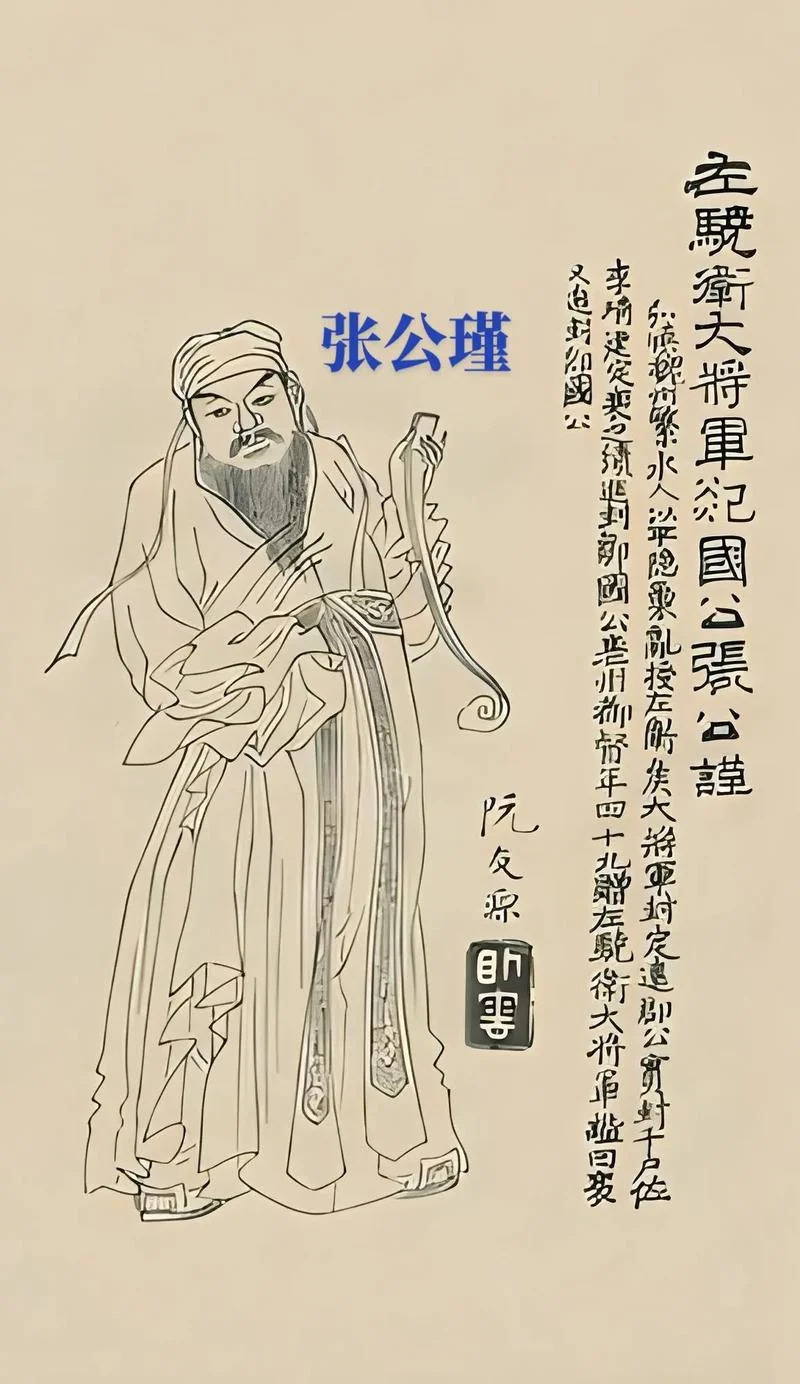 左驍衛大將軍郯國公張公謹
弘慎魏州繁水人以平隐巢亂授左候大將軍封定遠郡公實封千户佐
李靖建定襄之績進封鄒國公州都督年四十九贈左驍衛大將軍謚曰襄
又追封郯國公
张公瑾
阮友源